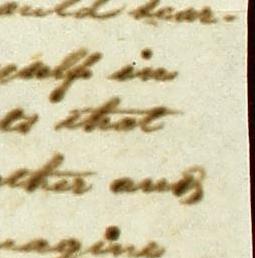 ould scar-
self in
ts that
other and
magine